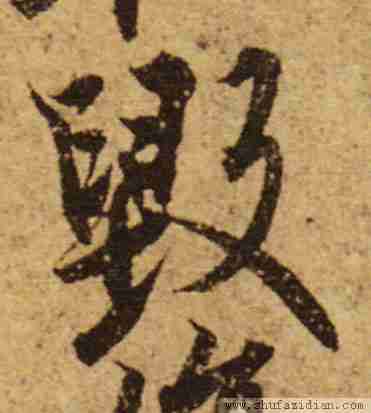 毀
www.shufazidian.com